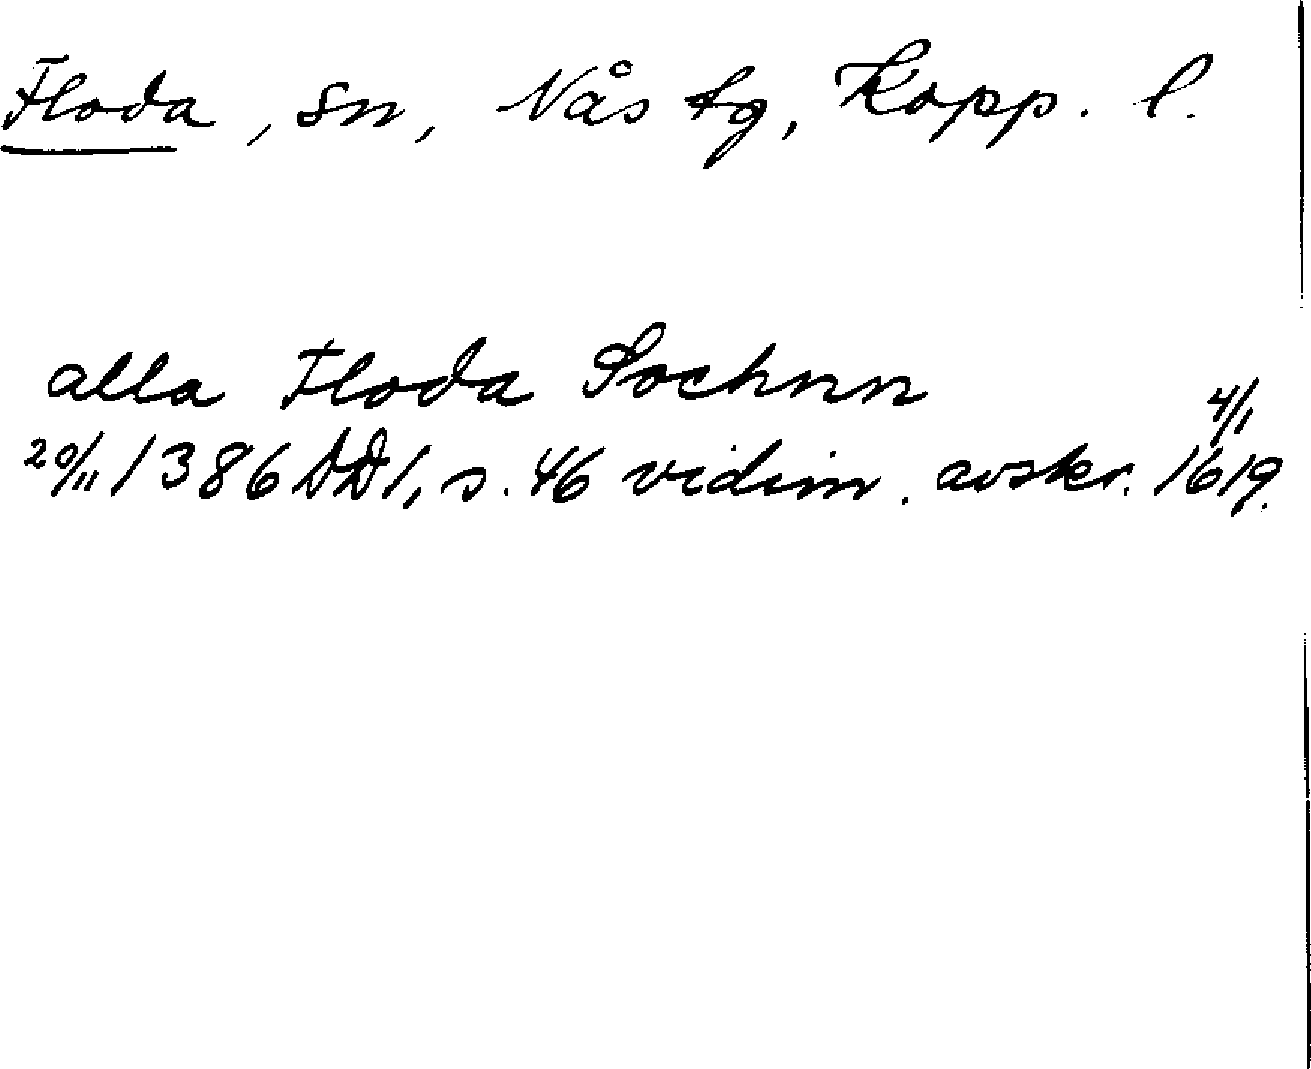 Floda, sn, Nås tg, Kopp. l.
alla Floda Sochnn
20/11 1386 DD1, s. 46 vidim. avskr. 4/1 1619.